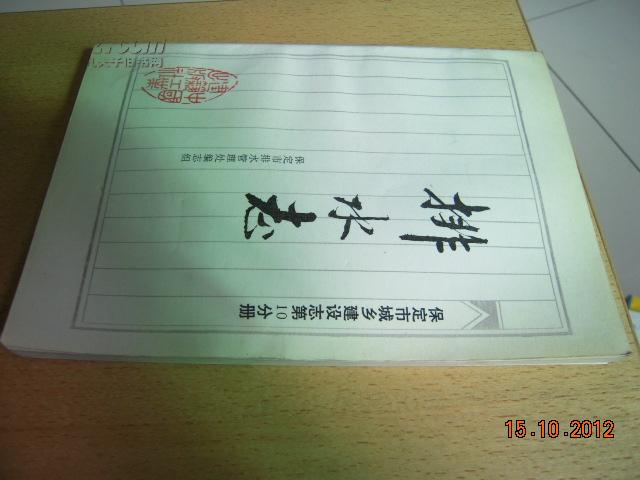 保定市城乡建设志第10分册
排水志
保定市排水管理处编志组
15.10.2012